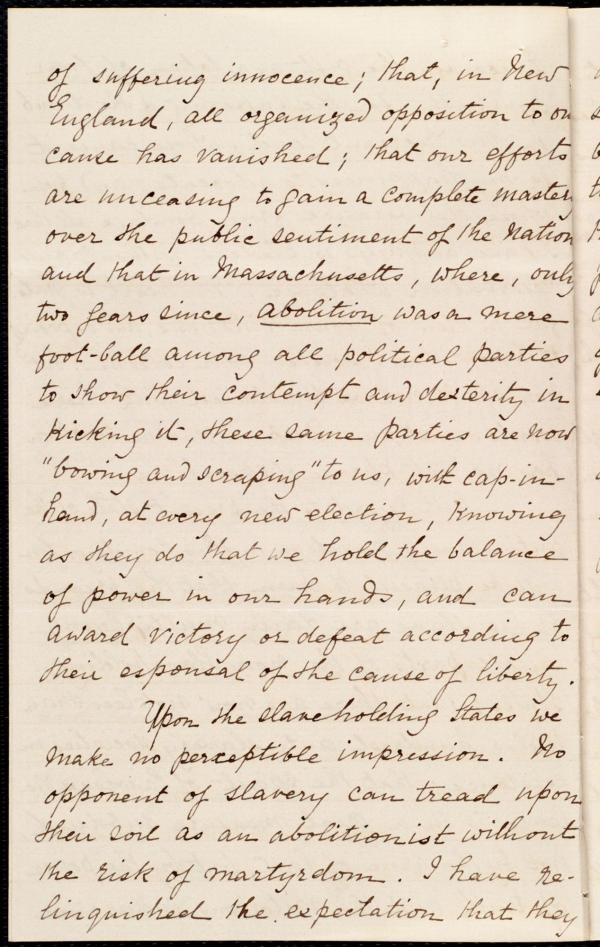 of suffering innocence; that, in New
England, all organized opposition to ou
cause has vanished; that our efforts
are unceasing to gain a complete master
over the public sentiment of the Nation
and that in Massachusetts, where, only
two years since, abolition was a mere
foot-ball among all political parties
to show their contempt and dexterity in
kicking it, these same parties are now
"bowing and scraping" to us, with cap-in-
hand, at every new election, knowing
as they do that we hold the balance
of power in our hands, and can
award victory or defeat according to
their espousal of the cause of liberty.
Upon the slaveholding States we
make no perceptible impression. No
opponent of slavery can tread upon
their soil as an abolitionist without
the risk of martyrdom. I have re-
linquished the expectation that they